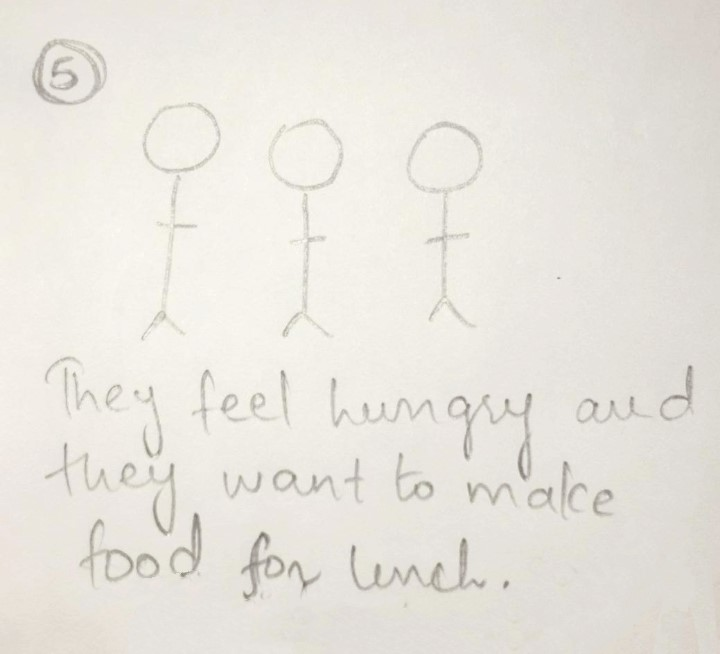 5
They feel hungry and
they want to make
food for lunch.